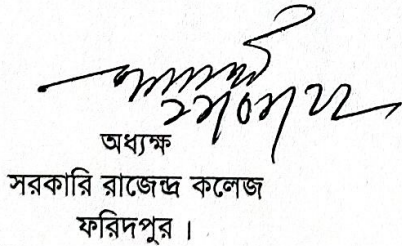 অধ্যক্ষ
সরকারি রাজেন্দ্র কলেজ
ফরিদপুর।